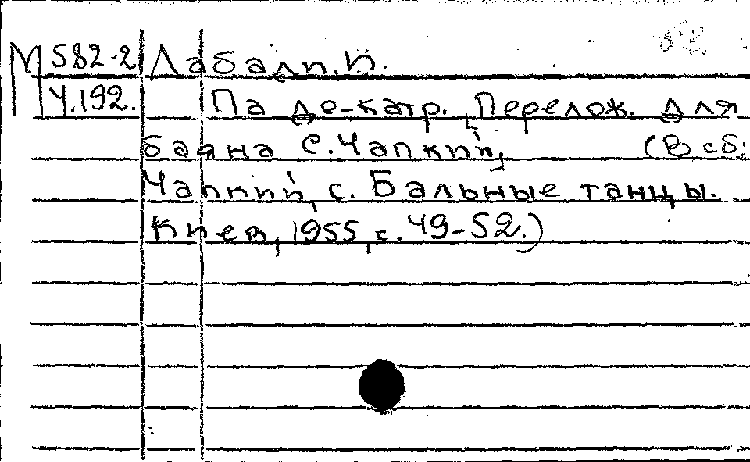 М 582-2 Лабади, П.
Ч.192. Па де-катр. Перелож. для
баяна С. Чапкий, (В сб:
Чапкий, С. Бальные танцы.
Киев, 1955, с. 49-52.)